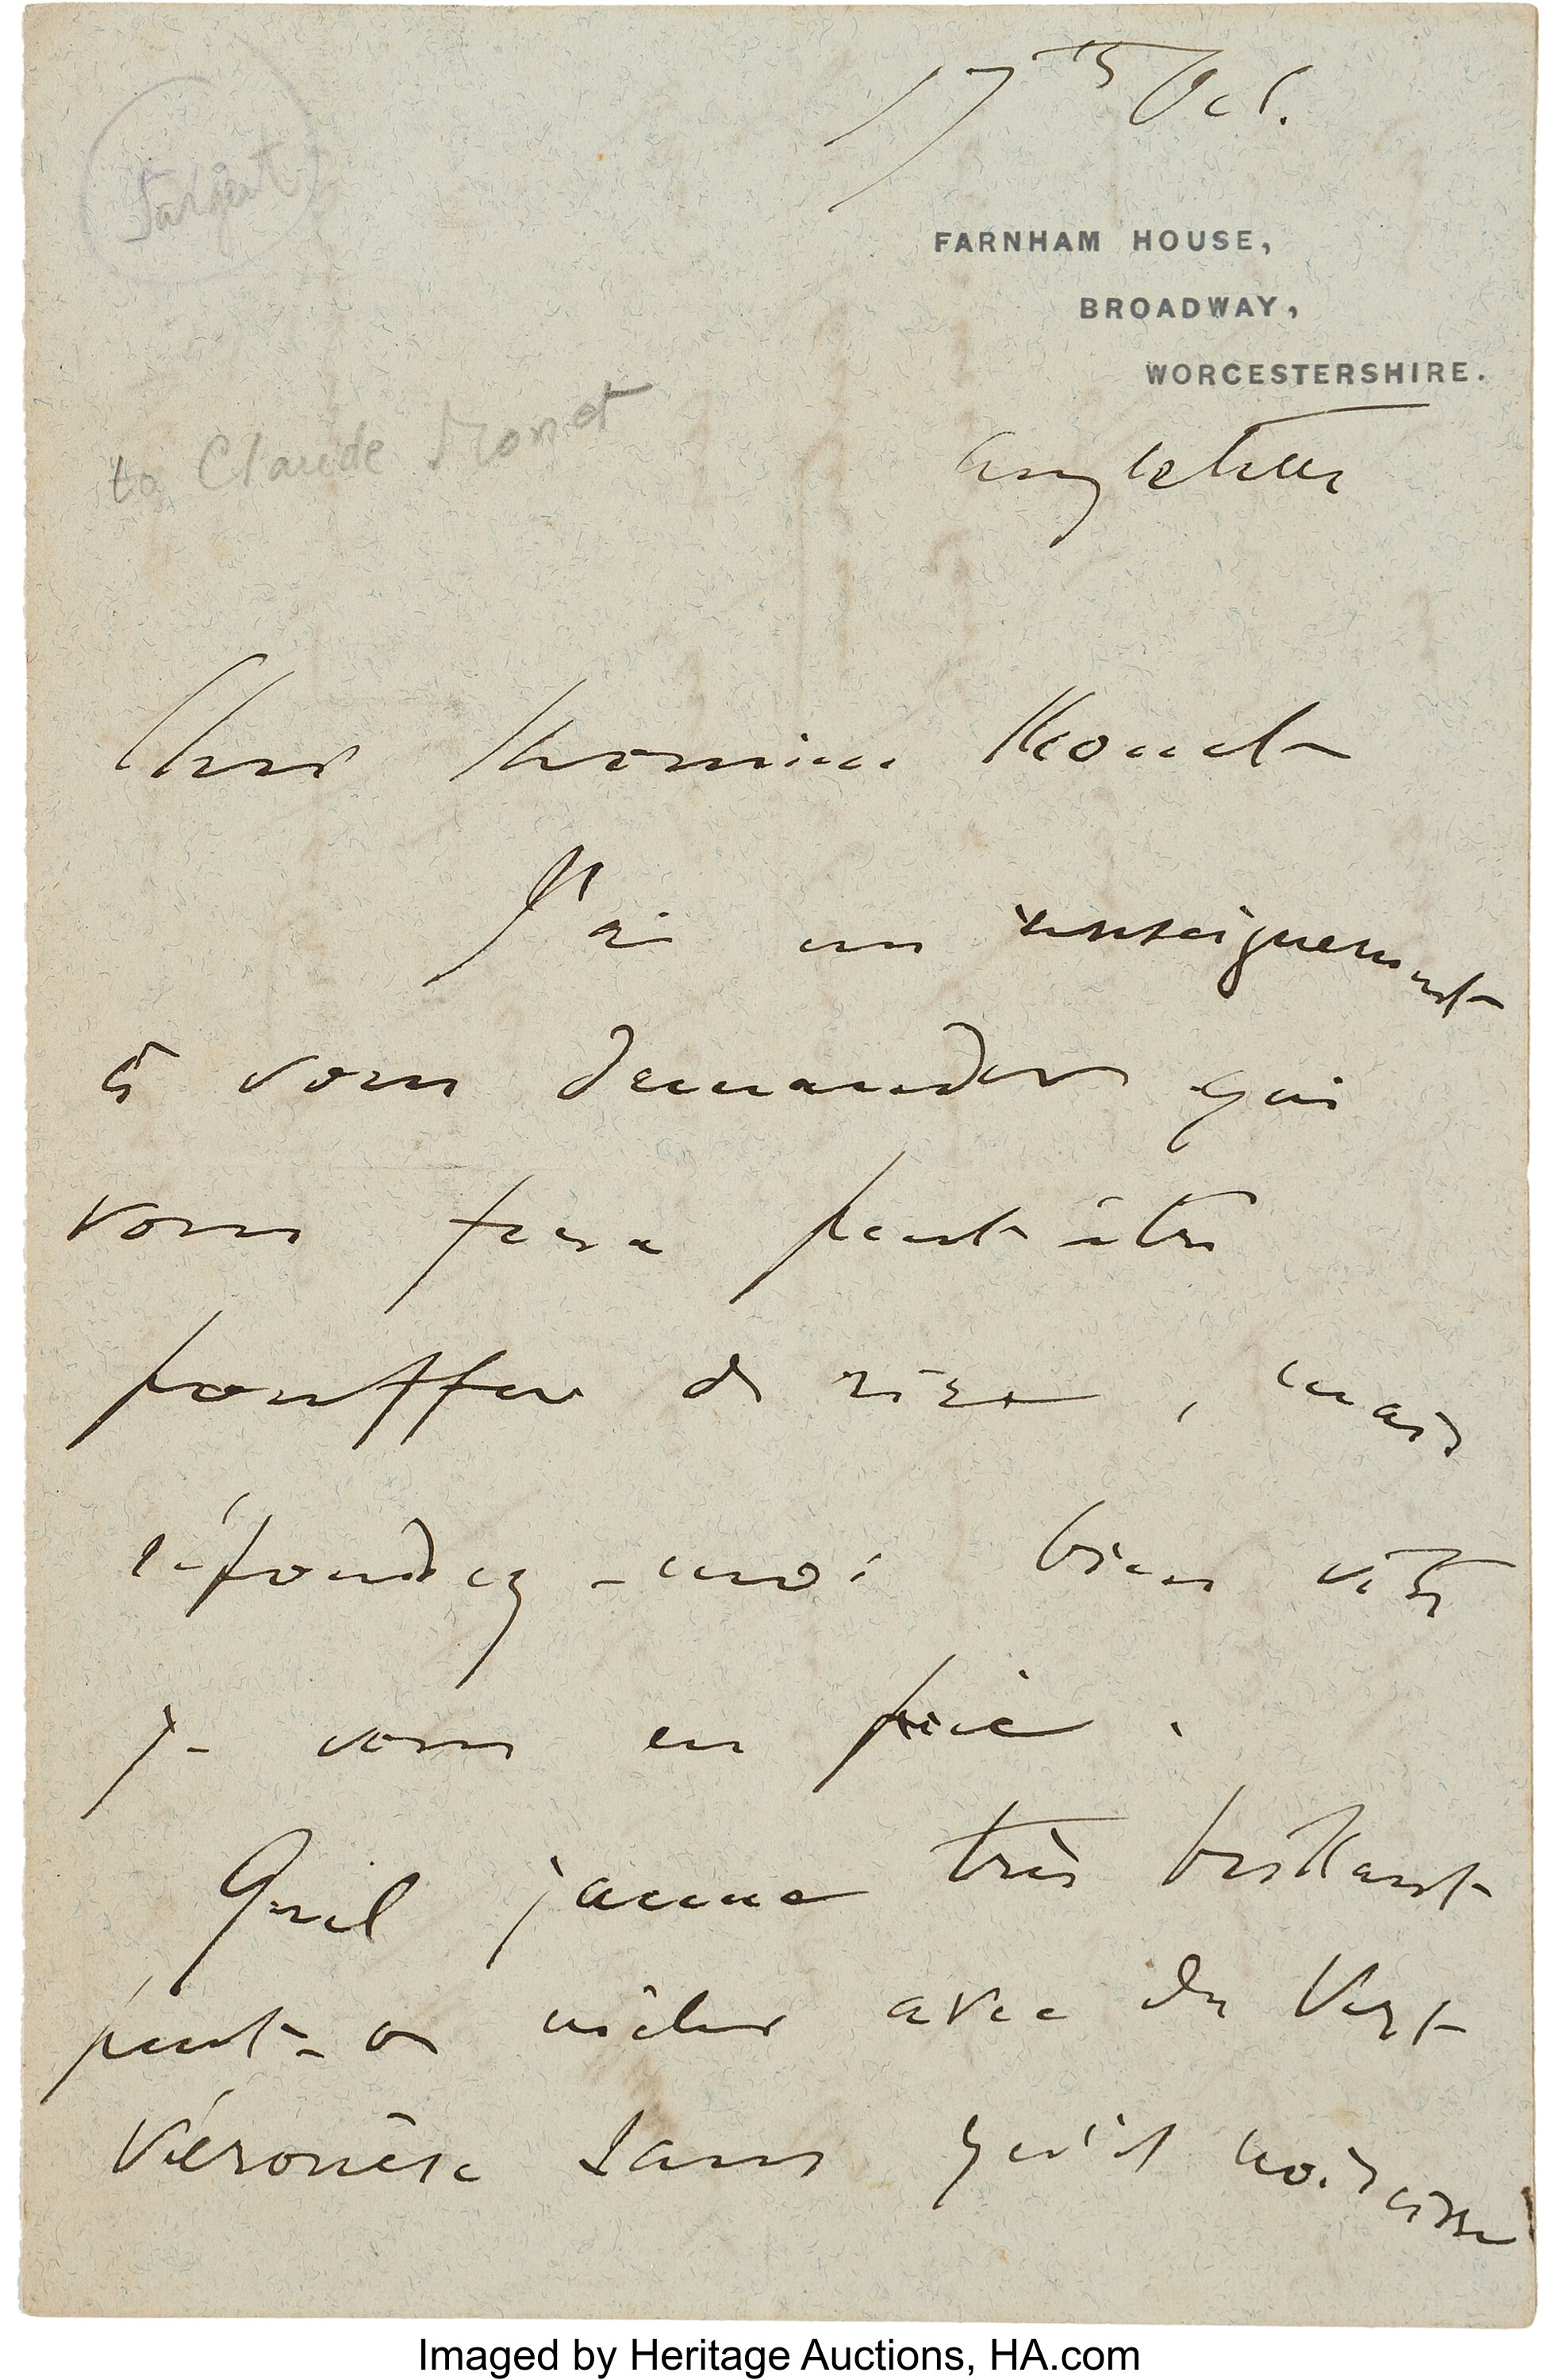 17th Oct.
Sargent
FARNHAM HOUSE,
BROADWAY,
WORCESTERSHIRE.
to Claude Monet
Angleterre
Cher Monsieur Monet
J'ai un renseignement
à vous demander qui
vous fera peut être
pouffer de rire, mais
répondez-moi bien vite
je vous en prie.
Quel jaune très brillant
peut-on mêler avec du Vert
Véronèse sans qu'il noircisse
Imaged by Heritage Auctions, HA.com